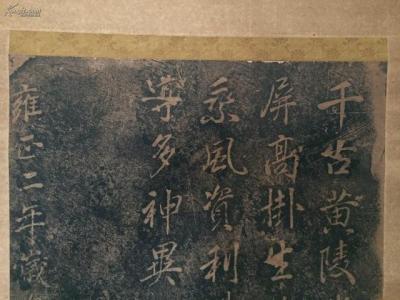 千古黄陵
屏高掛生
乘風資利
寧多神異
雍正二年歲